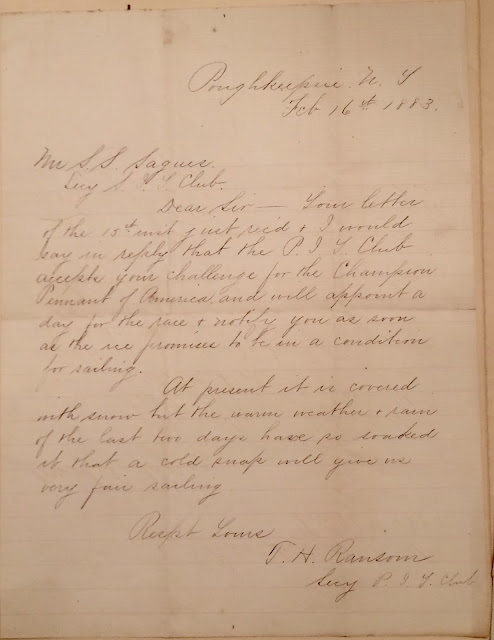 Poughkeepsie. N. Y
Feb 16th 1883.
Mr S. S. Sagues.
Secy S. I. Y. Club.
Dear Sir — Your letter
of the 15th inst just rec'd & I would
say in reply that the P. I. Y Club
accepts your challenge for the Champion
Pennant of America, and will appoint a
day for the race & notify you as soon
as the ice promises to be in a condition
for sailing.
At present it is covered
with snow but the warm weather & rain
of the last two days have so soaked
it that a cold snap will give us
very fair sailing
Respt Yours
T. H. Ransom
Secy P. I. Y. Club